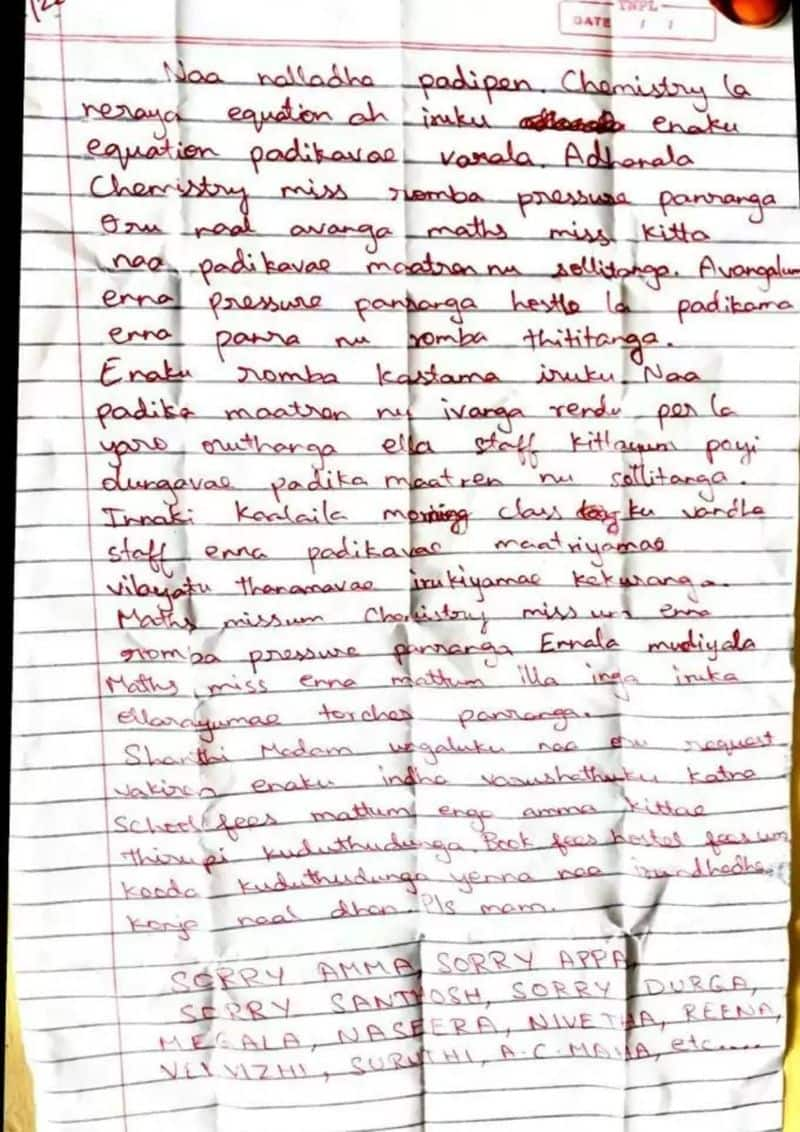 TNPL
DATE / /
Naa nalladha padipen. Chemistry la
neraya equation ah iruku enaku
equation padikavae varala. Adhanala
Chemistry miss romba pressure panranga
Oru naal avanga maths miss kitta
naa padikavae maatren nu sollitanga. Avangalum
enna pressure panranga hestle la padikama
enna panra nu romba thititanga.
Enaku romba kastama iruku. Naa
padika maatren nu ivanga rendu per la
yaro oruthanga ella staff kitlayum poyi
dungavae padika maatren nu sollitanga.
Innaki kaalaila morning class ku vandha
staff enna padikavae maatriyamae
vilayatu thanamavae irukiyamae kekuranga.
Maths missum Chemistry miss um enna
romba pressure panranga Ennala mudiyala
Maths miss enna mattum illa inga iruka
ellarayumae torcher panranga.
Shanthi Madam ungaluku naa oru request
vakiren enaku indha varushathuku katna
School fees mattum enga amma kittae
thirupi kuduthudunga. Book fees hostel feesum
kooda kuduthudunga yenna naa irundhadhe
konja naal dhan. Pls mam.
SORRY AMMA, SORRY APPA,
SORRY SANTHOSH, SORRY DURGA,
MEGALA, NASEERA, NIVETHA, REENA,
VELVIZHI, SURUTHI, A.C.MAHA, etc.....